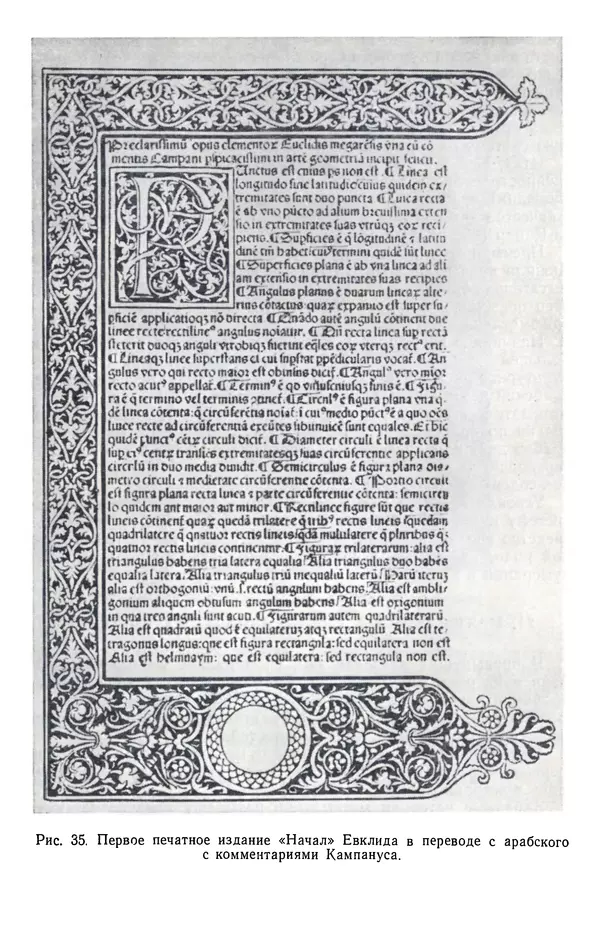 Preclarissimū opus elementoꝝ Euclidis megarēsis vna cū cō
mentis Campani in artē geometriā incipit
Punctus est cuius ps non est. ¶ Linea est
longitudo sine latitudine cuius quidem ex,
tremitates sunt duo puncta ¶ Linea recta
ē ab vno pūcto ad alium breuissima exten
sio in extremitates suas vtrūqꝫ eoꝝ reci
piens. ¶ Supficies ē q̄ lōgitudinē ⁊ latitu
dinē tm̄ habet: cuiꝰ termini quidē sūt linee
¶ Superficies plana ē ab vna linea ad ali
am extensio in extremitates suas recipiēs
¶ Angulus planus ē duarum lineaꝝ alte
rius cōtactus: quaꝝ expansio est super su,
pficiē applicatioqꝫ nō directa ¶ Quādo autē angulū cōtinent due
linee recte: rectilineꝰ angulus noiatur. ¶ Qn̄ recta linea sup rectā
steterit duoqꝫ anguli vtrobiqꝫ fuerint eqles: eoꝝ vterqꝫ rectꝰ erit.
¶ Lineaqꝫ linee superstans ei cui supstat ppēdicularis vocaf. ¶ An
gulus vero qui recto maior est obtusus dicif. ¶ Angulꝰ vero mīor
recto acutꝰ appellaf. ¶ Terminꝰ ē qd vniuscuiusqꝫ finis ē. ¶ Figu
ra ē q̄ termino vel terminis ¶ Circulꝰ ē figura plana vna q,
dē linea cōtenta: q̄ circūferētia noiaf: ī cuiꝰ medio pūctꝰ ē a quo oēs
linee recte ad circūferentiā exeūtes sibiinuicē sunt equales. Et hic
quidē pūnctꝰ cētꝝ circuli dicif. ¶ Diameter circuli ē linea recta q̄
sup eiꝰ centꝝ transiēs extremitatesqꝫ suas circūferentie applicans
circulū in duo media diuidit. ¶ Semicirculus ē figura plana dia,
metro circuli ⁊ medietate circūferentie cōtenta. ¶ Portio circuli
est figura plana recta linea ⁊ parte circūferentie cōtenta: semicircu
lo quidem aut maior aut minor. ¶ Rectilinee figure sūt que rectis
lineis cōtinent quaꝝ quedā trilatere q̄ trib rectis lineis: quedam
quadrilatere q̄ quatuor rectis lineis: qdā multilatere q̄ pluribus q̄
quatuor rectis lineis continentur. ¶ Figuraꝝ trilaterarum: alia est
triangulus habens tria latera equalia. Alia triangulus duo habēs
equalia latera. Alia triangulus triū inequaliū laterū. Harū iterū
alia est orthogoniū: vnū .s. rectū angulum habens. Alia est ambli,
gonium aliquem obtusum angulum habens. Alia est oxigonium
in qua tres anguli sunt acuti. ¶ Figurarum autem quadrilaterarū.
Alia est quadratū quod ē equilaterū atqꝫ rectangulū. Alia est te,
tragonus longus: que est figura rectangula: sed equilatera non est
Alia est helmuaym: que est equilatera: sed rectangula non est.
Рис. 35. Первое печатное издание «Начал» Евклида в переводе с арабского
с комментариями Кампануса.